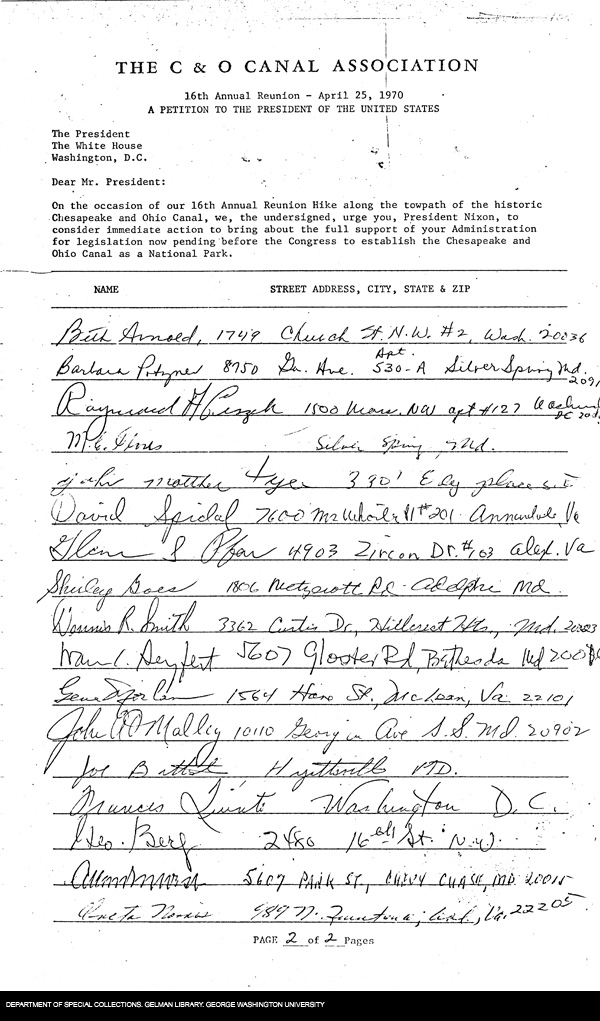 THE C & O CANAL ASSOCIATION
16th Annual Reunion - April 25, 1970
A PETITION TO THE PRESIDENT OF THE UNITED STATES
The President
The White House
Washington, D.C.
Dear Mr. President:
On the occasion of our 16th Annual Reunion Hike along the towpath of the historic
Chesapeake and Ohio Canal, we, the undersigned, urge you, President Nixon, to
consider immediate action to bring about the full support of your Administration
for legislation now pending before the Congress to establish the Chesapeake and
Ohio Canal as a National Park.
NAME STREET ADDRESS, CITY, STATE & ZIP
Beth Arnold, 1749 Church St. N.W. #2, Wash. 20036
Barbara 8750 Ga. Ave. Apt. 530-A Silver Spring Md.
Raymond 1500 Mass. NW apt #127
Silver Spring, Md.
John place
David #201 Annandale Va
Glenn S 4903 Zircon Dr. #103 Alex. Va
Shirley 1806 Rd. Adelphi Md.
Dennis R. Smith 3362 Curtis Dr., Hillcrest Hts., Md.
5607 Gloster Rd, Bethesda Md
Gene 1564 St., McLean, Va 22101
John O'Malley 10110 Georgia Ave S.S. Md. 20902
Joe MD.
Frances Washington D.C.
Geo. Berg 2480 16th St. N.W.
5607 PARK ST., CHEVY CHASE, MD. 20015
Va. 22205
PAGE 2 of 2 Pages
DEPARTMENT OF SPECIAL COLLECTIONS. GELMAN LIBRARY. GEORGE WASHINGTON UNIVERSITY